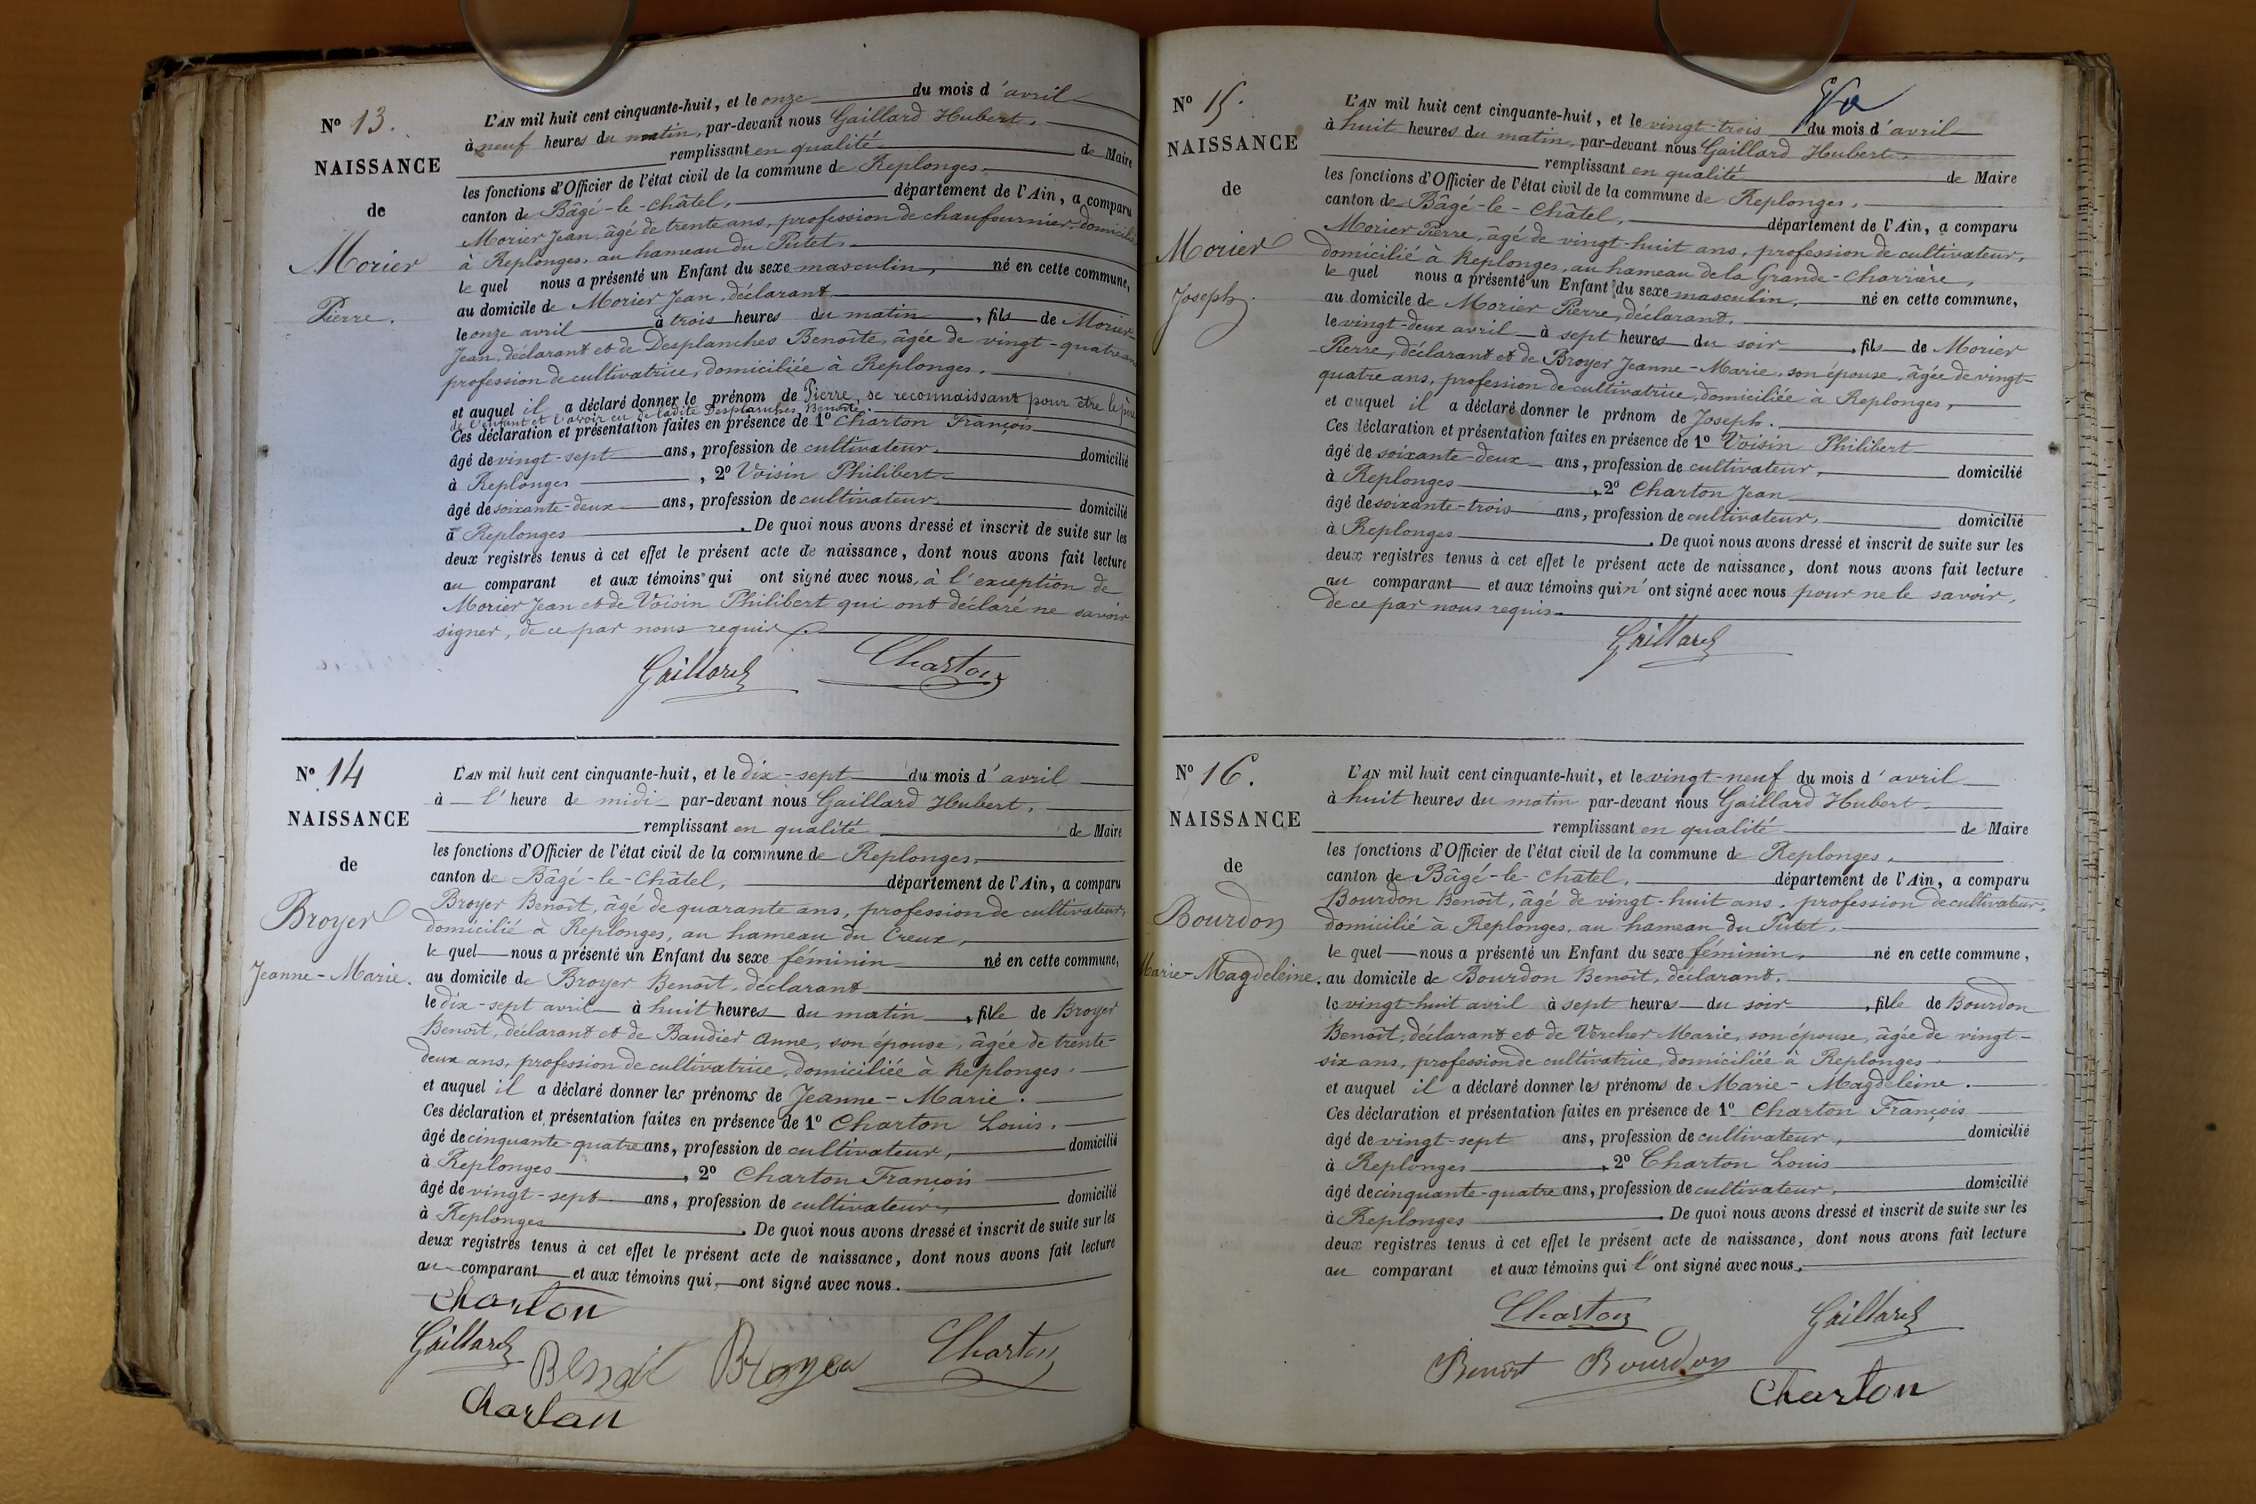 N° 13.
NAISSANCE
de
Morier
Pierre.
L'AN mil huit cent cinquante-huit, et le onze du mois d'avril
à neuf heures du matin, par-devant nous Gaillard Hubert,
remplissant en qualité de Maire
les fonctions d'Officier de l'état civil de la commune de Replonges,
canton de Bâgé-le-Châtel, département de l'Ain, a comparu
Morier Jean, âgé de trente ans, profession de chaufournier, domicilié
à Replonges, au hameau du Putet,
le quel nous a présenté un Enfant du sexe masculin, né en cette commune,
au domicile de Morier Jean, déclarant
le onze avril à trois heures du matin, fils de Morier
Jean, déclarant et de Desplanches Benoîte, âgée de vingt-quatre ans
profession de cultivatrice, domiciliée à Replonges.
et auquel il a déclaré donner le prénom de Pierre, se reconnaissant pour être le père
de l'enfant et l'avoir eu de ladite Desplanches Benoîte.
Ces déclaration et présentation faites en présence de 1° Charton François
âgé de vingt-sept ans, profession de cultivateur, domicilié
à Replonges, 2° Voisin Philibert
âgé de soixante-deux ans, profession de cultivateur, domicilié
à Replonges. De quoi nous avons dressé et inscrit de suite sur les
deux registres tenus à cet effet le présent acte de naissance, dont nous avons fait lecture
au comparant et aux témoins qui ont signé avec nous, à l'exception de
Morier Jean et de Voisin Philibert qui ont déclaré ne savoir
signer, de ce par nous requis.
Gaillard Charton
N° 14
NAISSANCE
de
Broyer
Jeanne-Marie.
L'AN mil huit cent cinquante-huit, et le dix-sept du mois d'avril
à l'heure de midi par-devant nous Gaillard Hubert,
remplissant en qualité de Maire
les fonctions d'Officier de l'état civil de la commune de Replonges,
canton de Bâgé-le-Châtel, département de l'Ain, a comparu
Broyer Benoît, âgé de quarante ans, profession de cultivateur,
domicilié à Replonges, au hameau du Creux,
le quel nous a présenté un Enfant du sexe féminin né en cette commune,
au domicile de Broyer Benoît, déclarant
le dix-sept avril à huit heures du matin, fille de Broyer
Benoît, déclarant et de Baudier Anne, son épouse, âgée de trente-
deux ans, profession de cultivatrice, domiciliée à Replonges.
et auquel il a déclaré donner les prénoms de Jeanne-Marie.
Ces déclaration et présentation faites en présence de 1° Charton Louis.
âgé de cinquante-quatre ans, profession de cultivateur, domicilié
à Replonges, 2° Charton François
âgé de vingt-sept ans, profession de cultivateur, domicilié
à Replonges. De quoi nous avons dressé et inscrit de suite sur les
deux registres tenus à cet effet le présent acte de naissance, dont nous avons fait lecture
au comparant et aux témoins qui, ont signé avec nous.
Charton
Gaillard Benoit Broyer Charton
Charton
N° 15.
NAISSANCE
de
Morier
Joseph.
L'AN mil huit cent cinquante-huit, et le vingt-trois du mois d'avril
à huit heures du matin, par-devant nous Gaillard Hubert,
remplissant en qualité de Maire
les fonctions d'Officier de l'état civil de la commune de Replonges,
canton de Bâgé-le-Châtel, département de l'Ain, a comparu
Morier Pierre, âgé de vingt-huit ans, profession de cultivateur,
domicilié à Replonges, au hameau de la Grande-Charière,
le quel nous a présenté un Enfant du sexe masculin, né en cette commune,
au domicile de Morier Pierre, déclarant,
le vingt-deux avril à sept heures du soir, fils de Morier
Pierre, déclarant et de Broyer Jeanne-Marie, son épouse, âgée de vingt-
quatre ans, profession de cultivatrice, domiciliée à Replonges,
et auquel il a déclaré donner le prénom de Joseph.
Ces déclaration et présentation faites en présence de 1° Voisin Philibert
âgé de soixante-deux ans, profession de cultivateur, domicilié
à Replonges, 2° Charton Jean
âgé de soixante-trois ans, profession de cultivateur, domicilié
à Replonges. De quoi nous avons dressé et inscrit de suite sur les
deux registres tenus à cet effet le présent acte de naissance, dont nous avons fait lecture
au comparant et aux témoins qui n'ont signé avec nous pour ne le savoir,
de ce par nous requis.
Gaillard
N° 16.
NAISSANCE
de
Bourdon
Marie-Magdeleine.
L'AN mil huit cent cinquante-huit, et le vingt-neuf du mois d'avril
à huit heures du matin par-devant nous Gaillard Hubert
remplissant en qualité de Maire
les fonctions d'Officier de l'état civil de la commune de Replonges,
canton de Bâgé-le-Châtel, département de l'Ain, a comparu
Bourdon Benoît, âgé de vingt-huit ans, profession de cultivateur,
domicilié à Replonges, au hameau du Putet,
le quel nous a présenté un Enfant du sexe féminin, né en cette commune,
au domicile de Bourdon Benoît, déclarant,
le vingt-huit avril à sept heures du soir, fille de Bourdon
Benoît, déclarant et de Vercher Marie, son épouse, âgée de vingt-
six ans, profession de cultivatrice, domiciliée à Replonges
et auquel il a déclaré donner les prénoms de Marie-Magdeleine.
Ces déclaration et présentation faites en présence de 1° Charton François
âgé de vingt-sept ans, profession de cultivateur, domicilié
à Replonges, 2° Charton Louis
âgé de cinquante-quatre ans, profession de cultivateur, domicilié
à Replonges. De quoi nous avons dressé et inscrit de suite sur les
deux registres tenus à cet effet le présent acte de naissance, dont nous avons fait lecture
au comparant et aux témoins qui l'ont signé avec nous.
Charton Gaillard
Benoît Bourdon
Charton